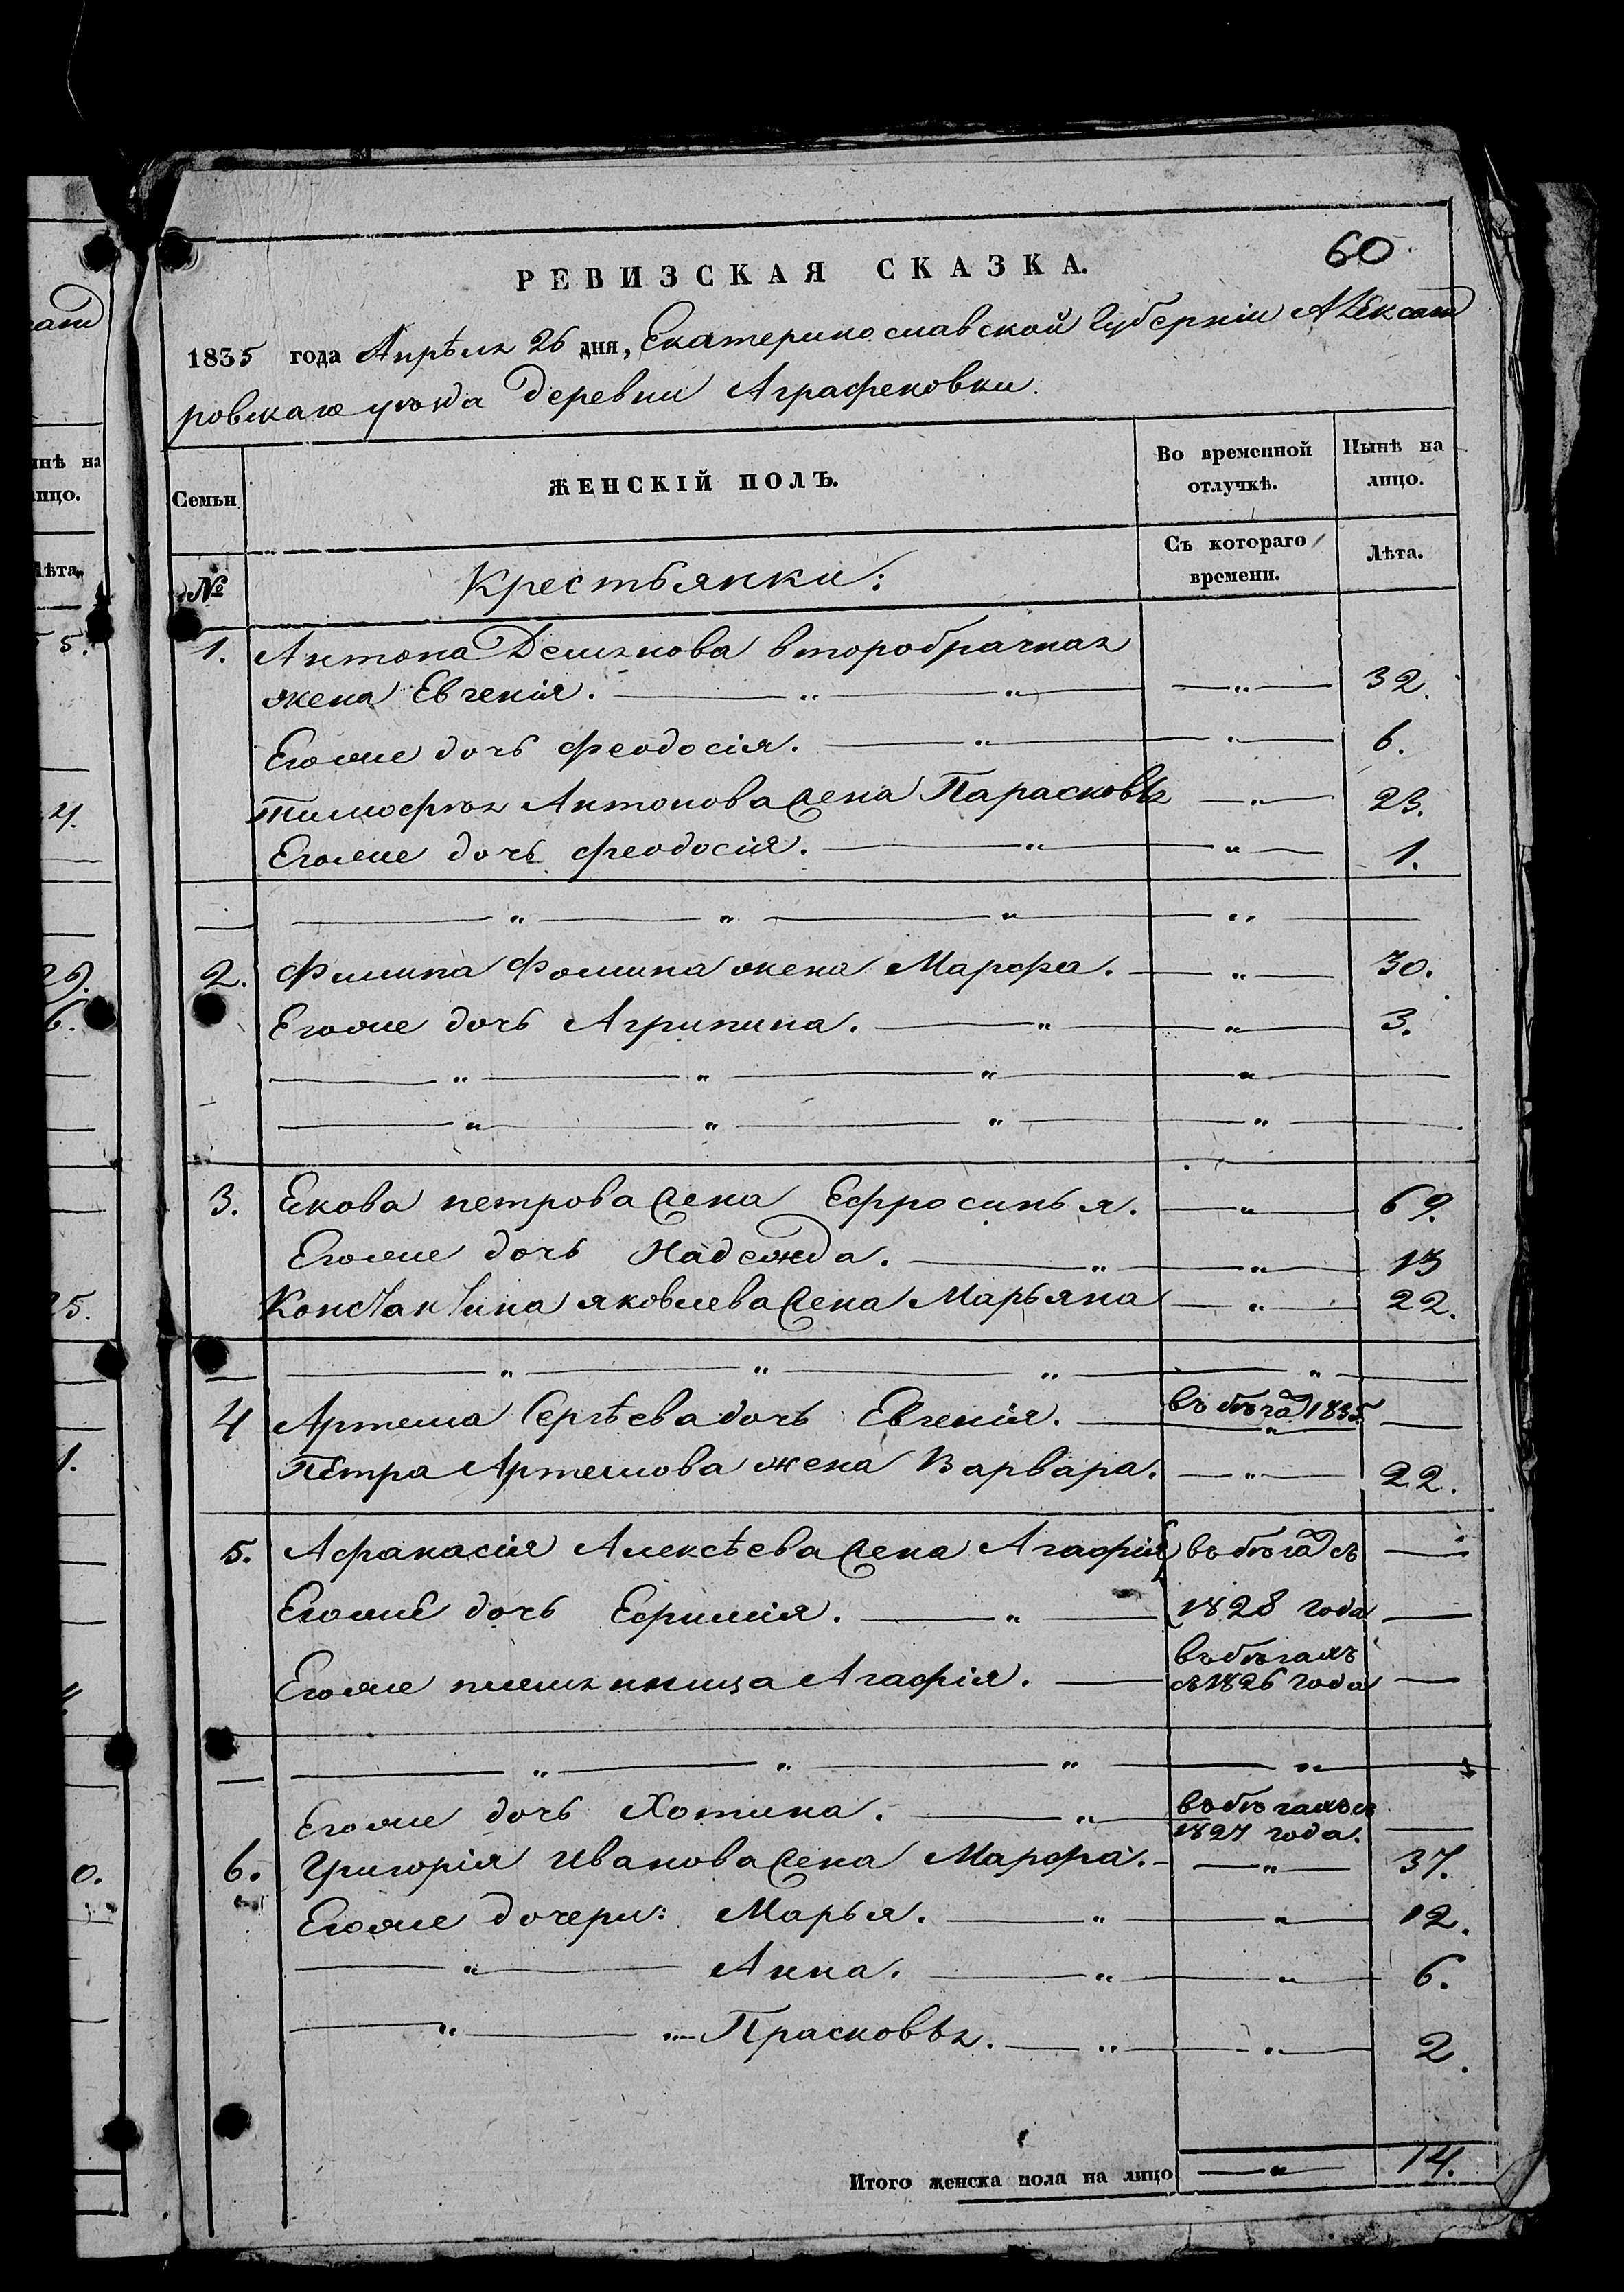 60
РЕВИЗСКАЯ СКАЗКА.
1835 года Апрѣля 26 дня, Екатеринославской Губерніи Александ
ровскаго уѣзда деревни Аграфеновки.
Семьи
ЖЕНСКІЙ ПОЛЪ.
Во временной отлучкѣ.
Нынѣ на лицо.
№
Крестьянки:
Съ котораго времени.
Лѣта.
1. Антона Демьянова второбрачная
жена Евгенія. — „ — „ — — „ — 32.
Егоже дочь Феодосія. — „ — „ — 6.
Тимофѣя Антонова жена Парасковья — „ — 23.
Егоже дочь Феодосія. — „ — „ — 1.
— „ — „ — „ — „ —
2. Филипа Фомина жена Марфа. — „ — 30.
Егоже дочь Агрипина. — „ — „ — 3.
— „ — „ — „ — „ —
— „ — „ — „ — „ —
3. Екова петрова жена Ефросинья. — „ — 69.
Егоже дочь Надежда. — „ — „ — 13
Константина яковлева жена Марьяна — „ — 22.
— „ — „ — „ — „ —
4 Артема Сергѣева дочь Евгенія. — въ бѣгахъ 1835 —
Петра Артемова жена Варвара. — „ — 22.
5. Афанасія Алексѣева жена Агафія въ бѣгахъ съ —
Егоже дочь Ефимія. — „ — 1828 года —
Егоже племяница Агафія. — въ бѣгахъ
съ 1826 года —
— „ — „ — „ — „ —
Егоже дочь Хотина. — „ — въ бѣгахъ съ
1827 года. —
6. Григорія Иванова жена Марфа. — „ — 37.
Егоже дочери: Марья. — „ — „ — 12.
— „ — Анна. — „ — „ — 6.
— „ — „ — Прасковья. — „ — „ — 2.
Итого женска пола на лицо — „ — 14.